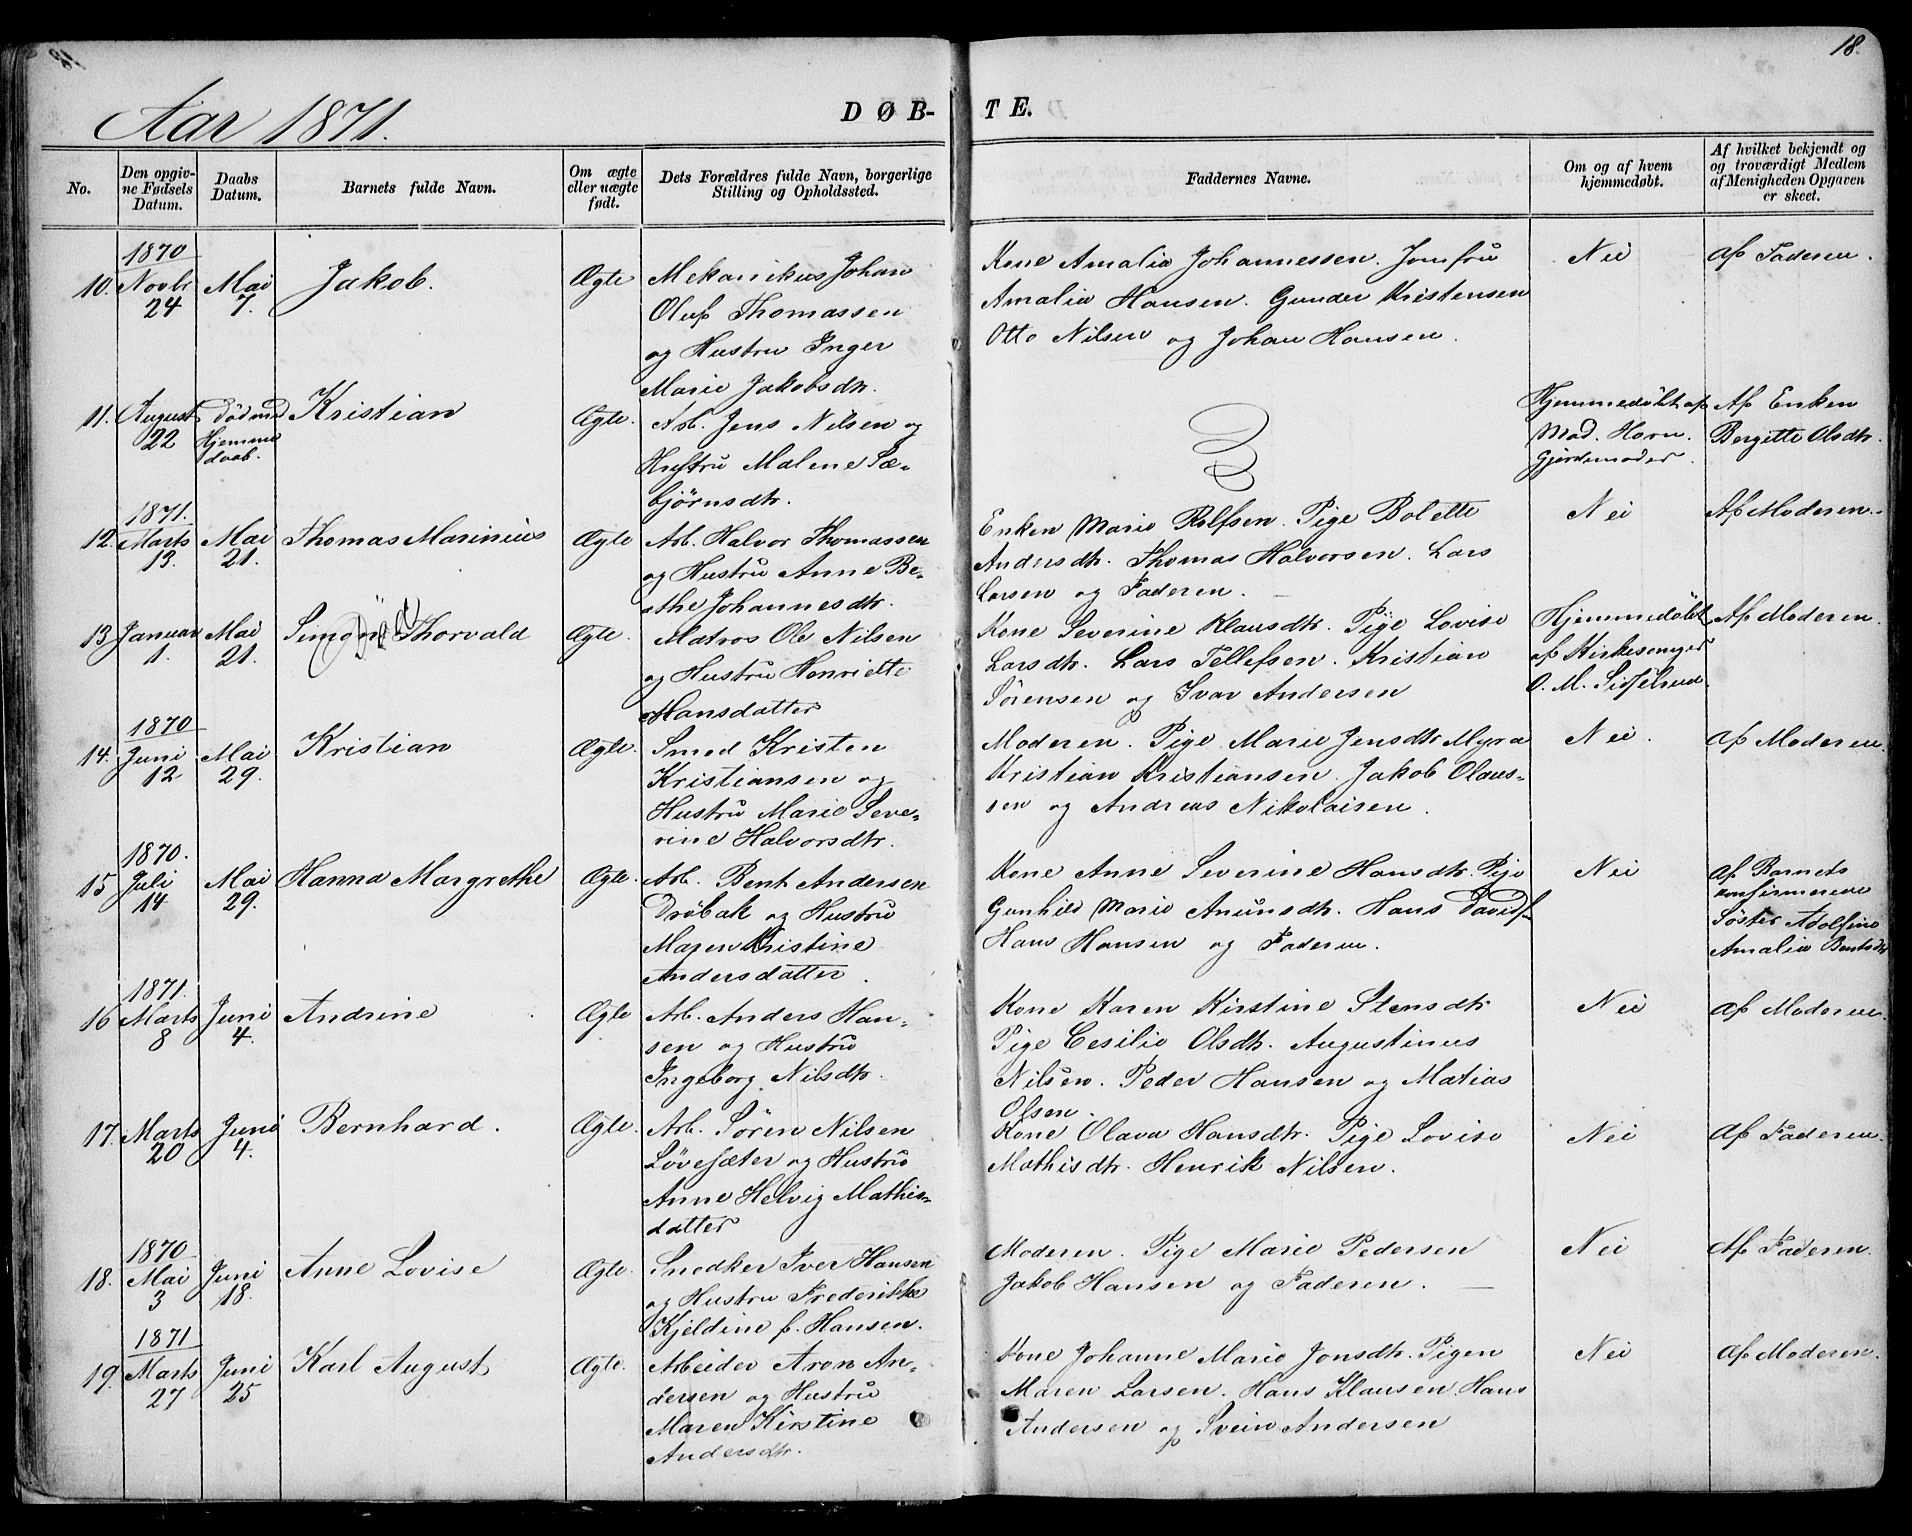 18.
Aar 1871.
DØB-
TE.
No.
Den opgiv-
ne Fødsels
Datum.
Daabs
Datum.
Barnets fulde Navn.
Om ægte
eller uægte
født.
Dets Forældres fulde Navn, borgerlige
Stilling og Opholdssted.
Faddernes Navne.
Om og af hvem
hjemmedøbt.
Af hvilket bekjendt og
og troværdigt Medlem
af Menigheden Opgaven
er skeet.
10.
1870
Novbr
24
Mai
7.
Jakob.
Ægte
Mekanikus Johan
Oluf Thomassen
og Hustru Inger
Marie Jakobsdtr.
Kone Amalia Johannessen. Jomfru
Amalia Hansen. Gunder Kristensen
Otto Nilsen og Johan Hansen.
Nei
Af Faderen.
11.
August
22
Død med
Hjemme
daab.
Kristian
Ægte.
Arb. Jens Nilsen og
Hustru Malene Sæ-
björnsdtr.
Hjemmedøbt af
Mad. Horn.
Gjordemoder.
Af Enken
Bergitte Olsdtr.
12.
1871.
Marts
13.
Mai
21.
Thomas Marinius
Ægte
Arb. Halvor Thomassen
og Hustru Anne Be-
athe Johannesdtr.
Enken Marie Rolfsen. Pige Bolette
Andersdtr. Thomas Halvorsen. Lars
Larsen og Faderen.
Nei
Af Moderen.
13
Januar
1.
Mai
21.
Simon Thorvald
Død
Ægte.
Matros Ole Nilsen
og Hustru Henriette
Hansdatter
Kone Severine Klausdtr. Pige Lovise
Larsdtr. Lars Tellefsen. Kristian
Sörensen og Ivar Andersen
Hjemmedøbt
af Kirkesanger
O. M.
Af Moderen.
14.
1870
Juni
12
Mai
29.
Kristian
Ægte.
Smed Kristen
Kristiansen og
Hustru Marie Seve-
rine Halvorsdtr.
Moderen. Pige Marie Jensdtr Myra
Kristian Kristiansen. Jakob Olaus-
sen og Andreas Nikolaisen.
Nei.
Af Moderen.
15
1870.
Juli
14
Mai
29.
Hanna Margrethe
Ægte.
Arb. Bent Andersen
Dröbak og Hustru
Maren Kristine
Andersdatter.
Kone Anne Severine Hansdtr. Pige
Gunhild Marie Anunsdtr. Hans Davids.
Hans Hansen og Faderen.
Nei
Af Barnets
konfirmerede
Søster Adolfine
Amalia Bentsdtr
16
1871.
Marts
8
Juni
4.
Andrine
Ægte
Arb. Anders Han-
sen og Hustru
Ingeborg Nilsdtr.
Kone Karen Kirstine Stensdtr
Pige Cesilie Olsdtr. Augustinus
Nilsen. Peder Hansen og Matias
Olsen.
Nei
Af Moderen.
17.
Marts
20
Juni
4.
Bernhard.
Ægte.
Arb. Sören Nilsen
Løvesæter og Hustru
Anne Helvig Mathis-
datter
Kone Olava Hansdtr. Pige Lovise
Mathisdtr. Henrik Nilsen.
Nei
Af Faderen.
18.
1870
Mai
3
Juni
18.
Anne Lovise
Ægte.
Snedker Iver Hansen
og Hustru Frederikke
Kjeldine f. Hansen.
Moderen. Pige Marie Pedersen
Jakob Hansen og Faderen.
Nei
Af Faderen.
19.
1871
Marts
27
Juni
25
Karl August
Ægte.
Arbeider Aron An-
dersen og Hustru
Maren Kirstine
Andersdtr.
Kone Johanne Marie Jonsdtr. Pigen
Maren Larsen. Hans Klausen. Hans
Andersen og Svein Andersen
Nei
Af Moderen.